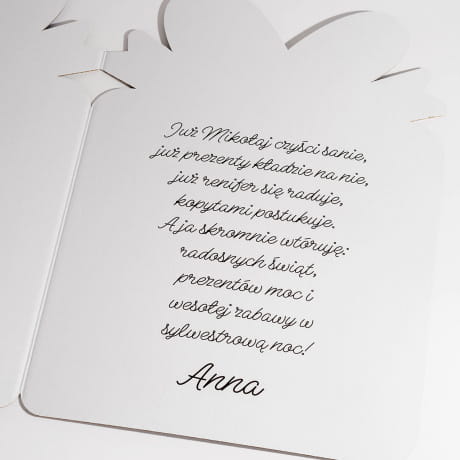 Już Mikołaj czyści sanie,
już prezenty kładzie na nie,
już renifer się raduje,
kopytami postukuje.
A ja skromnie wtóruję:
radosnych świąt,
prezentów moc i
wesołej zabawy w
sylwestrową noc!
Anna